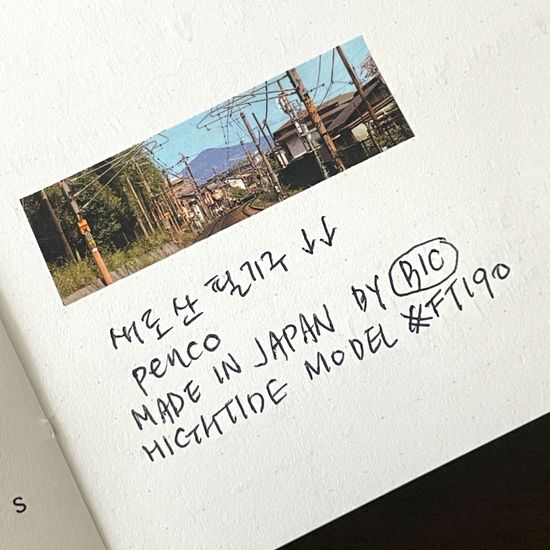 새로 산 필기구 ↓↓
penco
MADE IN JAPAN BY BIC
HIGHTIDE MODEL #FT190
S